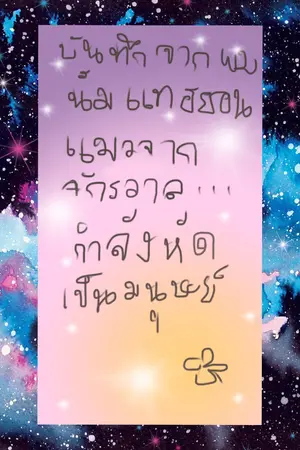 บันทึกจากผม
นั้มแทฮยอน
แมวจาก
จักรวาล...
กำลังหัด
เป็นมนุษย์